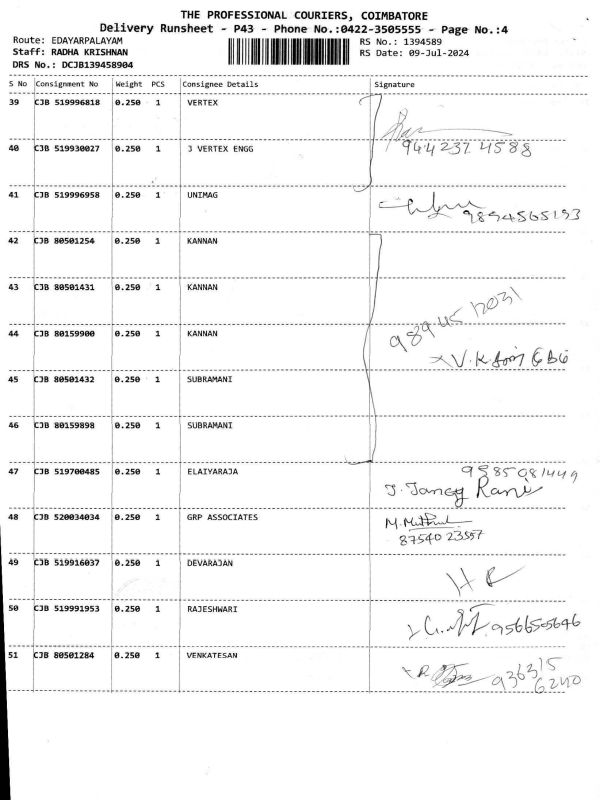 THE PROFESSIONAL COURIERS, COIMBATORE
Delivery Runsheet - P43 - Phone No.:0422-3505555 - Page No.:4
Route: EDAYARPALAYAM
RS No.: 1394589
Staff: RADHA KRISHNAN
RS Date: 09-Jul-2024
DRS No.: DCJB139458904
S No Consignment No Weight PCS Consignee Details Signature
39 CJB 519996818 0.250 1 VERTEX
40 CJB 519930027 0.250 1 J VERTEX ENGG
944 237 4588
41 CJB 519996958 0.250 1 UNIMAG
9894565193
42 CJB 80501254 0.250 1 KANNAN
43 CJB 80501431 0.250 1 KANNAN
989 45 12031
44 CJB 80159900 0.250 1 KANNAN
45 CJB 80501432 0.250 1 SUBRAMANI
46 CJB 80159898 0.250 1 SUBRAMANI
47 CJB 519700485 0.250 1 ELAIYARAJA
9585081449
J. Jancy Rani
48 CJB 520034034 0.250 1 GRP ASSOCIATES
87540 23557
49 CJB 519916037 0.250 1 DEVARAJAN
50 CJB 519991953 0.250 1 RAJESHWARI
9566505646
51 CJB 80501284 0.250 1 VENKATESAN
936315
6240